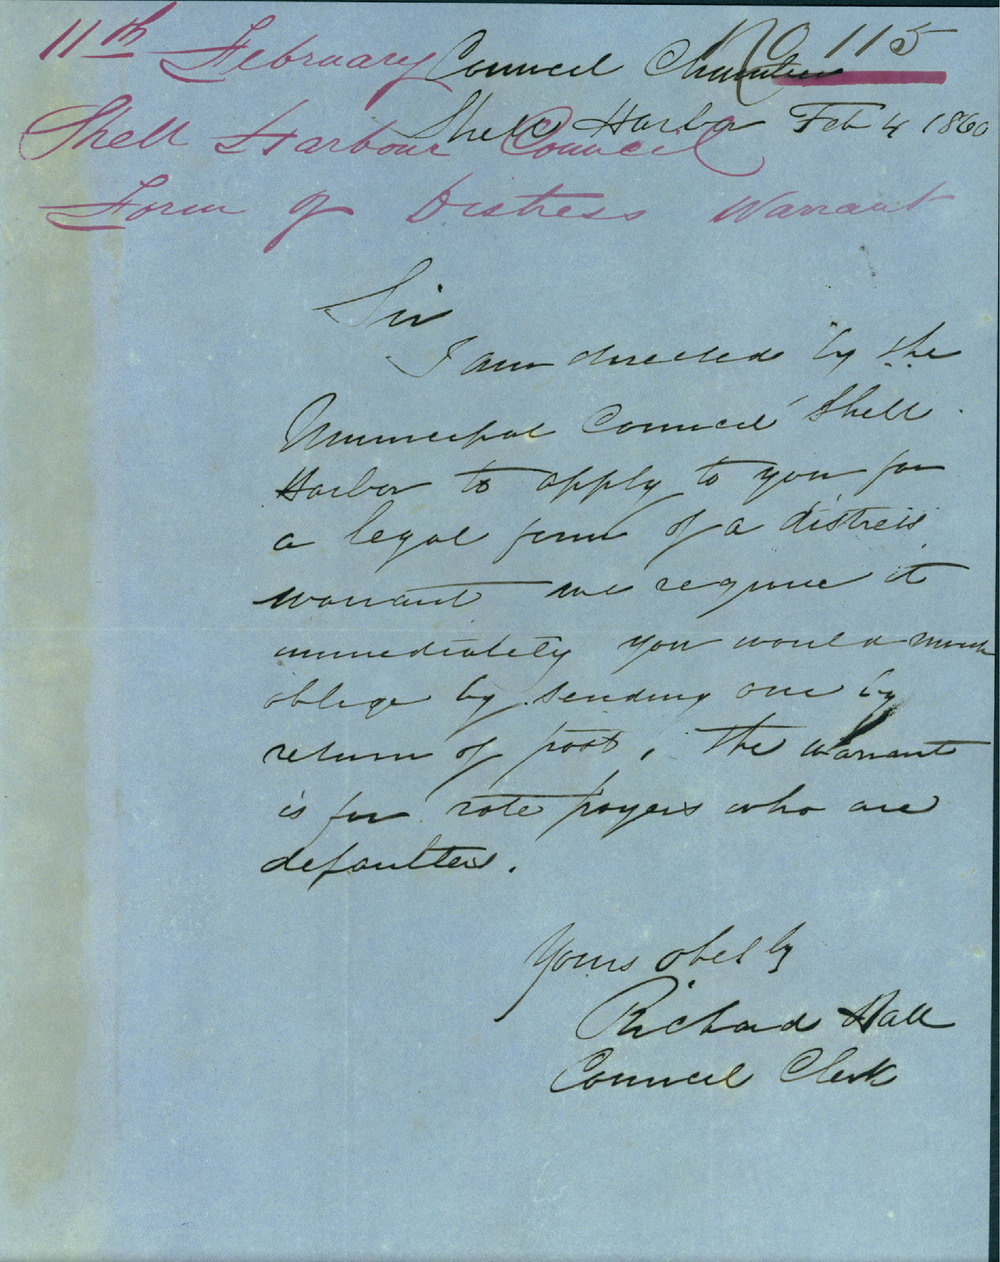 No 115
11th February
Shell Harbour Council
Form of Distress Warrant
Council Chamber
Shell Harbor Feb 4 1860
Sir
I am directed by the
Municipal Council Shell
Harbor to apply to you for
a legal form of a distress
warrant we require it
immediately you would much
oblige by sending one by
return of post, the warrant
is for rate payers who are
defaulters.
Yours obetly
Richard Hall
Council Clerk